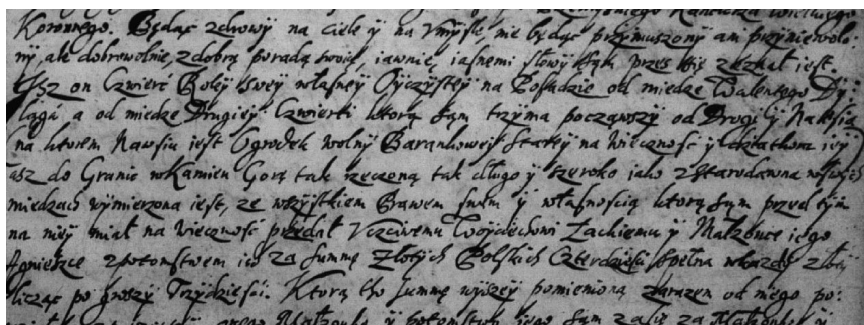 Kanclerza Wielkiego
Koronnego. Będąc zdrowy na ciele y na vmyśle, nie będąc przymuszony ani przyniewolo-
ny, ale dobrowolnie, z dobrą poradą swoię, iawnie, iasnemi słowy sąm przes się zeznał iest,
Isz on Czwierć Roley swey własney Oyczystey na Posadzie od miedze Walentego Dy
lągá a od miedze Drugiey Czwierti ktorą sąm trzyma począwszy od Drogi y Nawsia
na ktorem Nawsiu iest Ogrodek wolny Barankowey Starey na wieczność y dziatkom iey
asz do Granic w Kamien Gorę tak rzeczoną tak długo y szeroko iako z starodawna w swych
miedzach wymierzona iest, ze wszystkiem Prawem swem y własnością ktorą sąm przed tym
na niey miał na wieczność przedał Vczciwemu Woyciechowi Zachiemu y Małżonce iego
Agnieszce z potomstwem ich za summę Złotych Polskich Czterdzieści spełna w każdy złoty
licząc po groszy Trzydzieści. Ktorą tho summę wyszey pomienioną zarazem od niego po-
Małżonką y potomstwem iego sąm za się za Małżonkę y